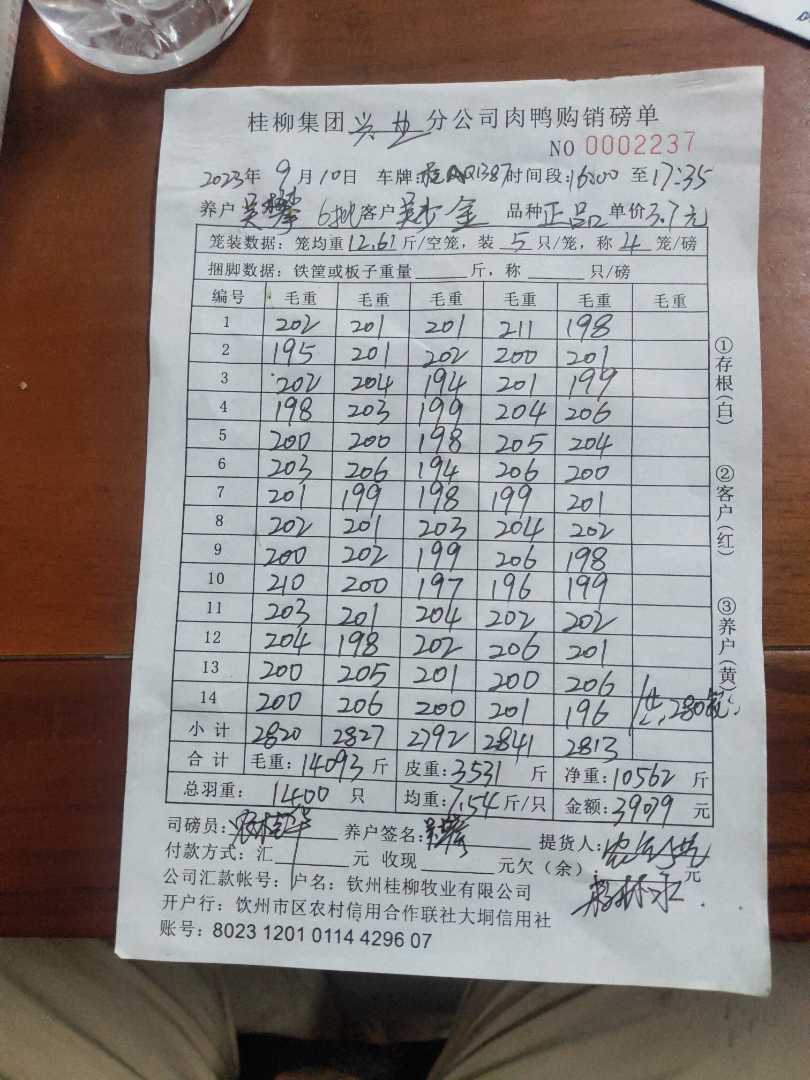 桂柳集团兴业分公司肉鸭购销磅单
NO 0002237
2023年9月10日 车牌:桂AQ1387时间段:16:00至17:35
养户吴攀6批客户吴金 品种正品单价3.7元
笼装数据：笼均重12.61斤/空笼，装5只/笼，称4笼/磅
捆脚数据：铁筐或板子重量 斤，称 只/磅
编号 毛重 毛重 毛重 毛重 毛重 毛重
1 202 201 201 211 198
2 195 201 202 200 201
3 202 204 194 201 199
4 198 203 199 204 206
5 200 200 198 205 204
6 203 206 194 206 200
7 201 199 198 199 201
8 202 201 203 204 202
9 200 202 199 206 198
10 210 200 197 196 199
11 203 201 204 202 202
12 204 198 202 206 201
13 200 205 201 200 206
14 200 206 200 201 196 280
小计 2820 2827 2792 2841 2813
合计 毛重：14093斤 皮重：3531斤 净重：10562斤
总羽重：1400只 均重：7.54斤/只 金额：39079元
司磅员： 养户签名：吴攀 提货人：
付款方式：汇 元 收现 元欠（余）： 元
公司汇款帐号：户名：钦州桂柳牧业有限公司
开户行：钦州市区农村信用合作联社大垌信用社
账号：8023 1201 0114 4296 07
①存根(白)
②客户(红)
③养户(黄)